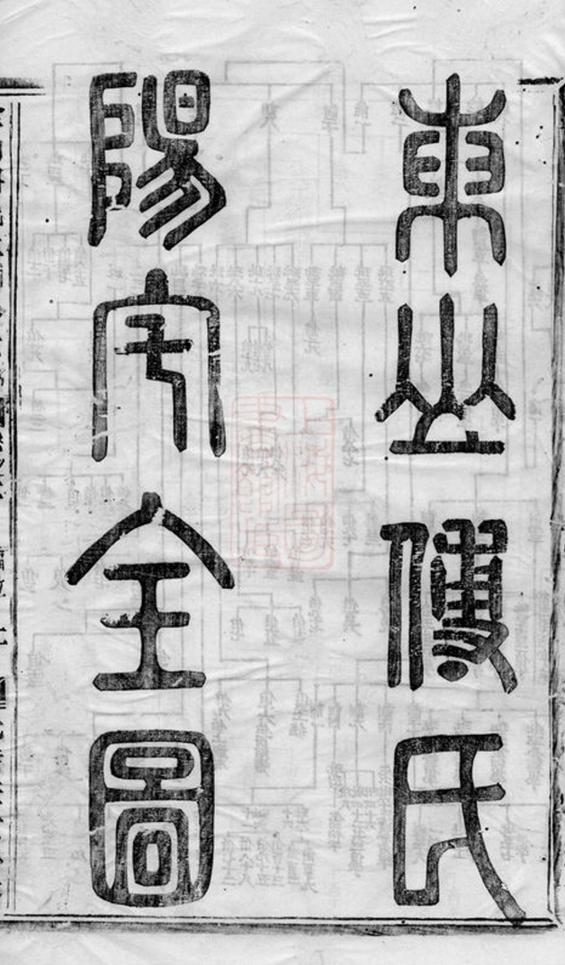 東山傅氏
陽宅全圖